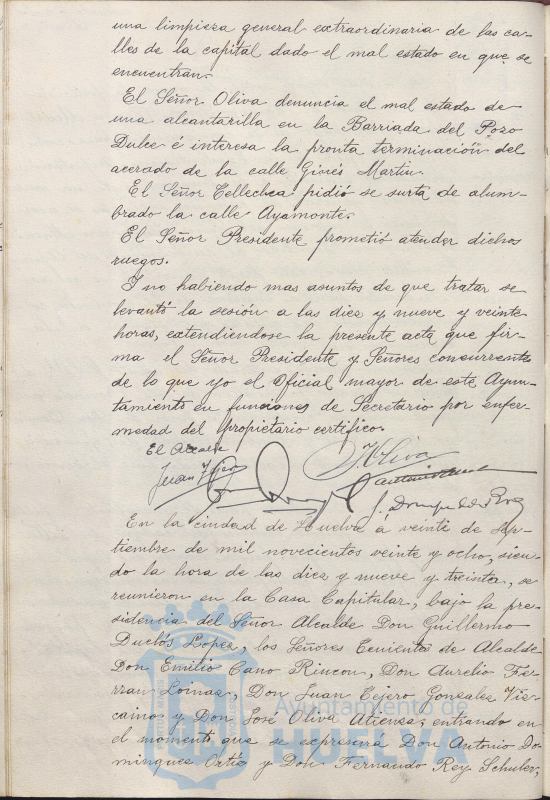 una limpieza general extraordinaria de las ca-
lles de la capital dado el mal estado en que se
encuentran.
El Señor Oliva denuncia el mal estado de
una alcantarilla en la Barriada del Pozo
Dulce é interesa la pronta terminación del
acerado de la calle Ginés Martin.
El Señor Tellechea pidió se surta de alum-
brado la calle Ayamonte.
El Señor Presidente prometió atender dichos
ruegos.
Y no habiendo mas asuntos de que tratar se
levantó la sesión a las diez y nueve y veinte
horas, extendiendose la presente acta que fir-
ma el Señor Presidente y Señores concurrentes
de lo que yo el Oficial mayor de este Ayun-
tamiento en funciones de Secretario por enfer-
medad del propietario certifico.
El Alcalde
J. Oliva
Juan Tejero
J. Domínguez
En la ciudad de Huelva á veinte de sep-
tiembre de mil novecientos veinte y ocho, sien-
do la hora de las diez y nueve y treinta, se
reunieron en la Casa Capitular, bajo la pre-
sidencia del Señor Alcalde Don Guillermo
Duclós Lopez, los Señores Tenientes de Alcalde
Don Emilio Cano Rincon, Don Aurelio Fe-
rran Loinaz, Don Juan Tejero Gonzalez Viz-
caino y Don José Oliva Atienza; entrando en
el momento que se expresará Don Antonio Do-
minguez Ortiz y Don Fernando Rey Schuler,
Ayuntamiento de
HUELVA